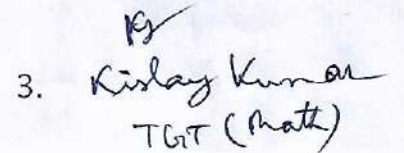 3. Kislay Kumar
TGT (Math)